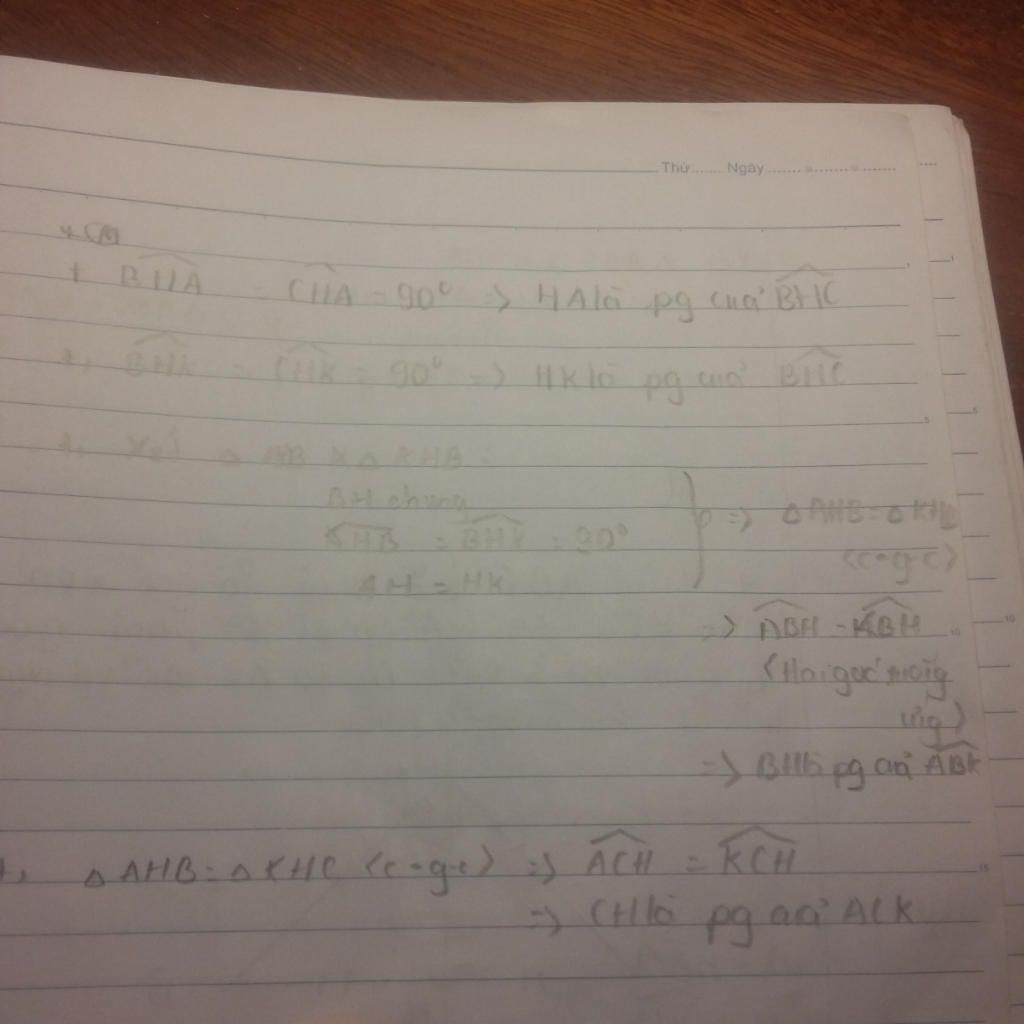 Thứ....... Ngày
+ CM
+ BHA = CHA = 90° => HA là pg của BHC
+, BHK = CHK = 90° => HK là pg của BHC
+, Xét Δ AHB & Δ KHB :
BH chung
KHB = BHK = 90°
AH = HK
=> Δ AHB = Δ KHB
(c-g-c)
=> ABH = KBH
(Hai góc tương
ứng)
=> BH là pg của ABK
+, Δ AHB = Δ KHC (c-g-c) => ACH = KCH
=> CH là pg của ACK